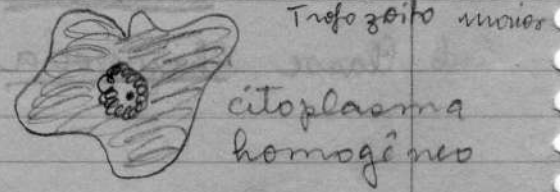 Trofozoito maior
citoplasma
homogêneo